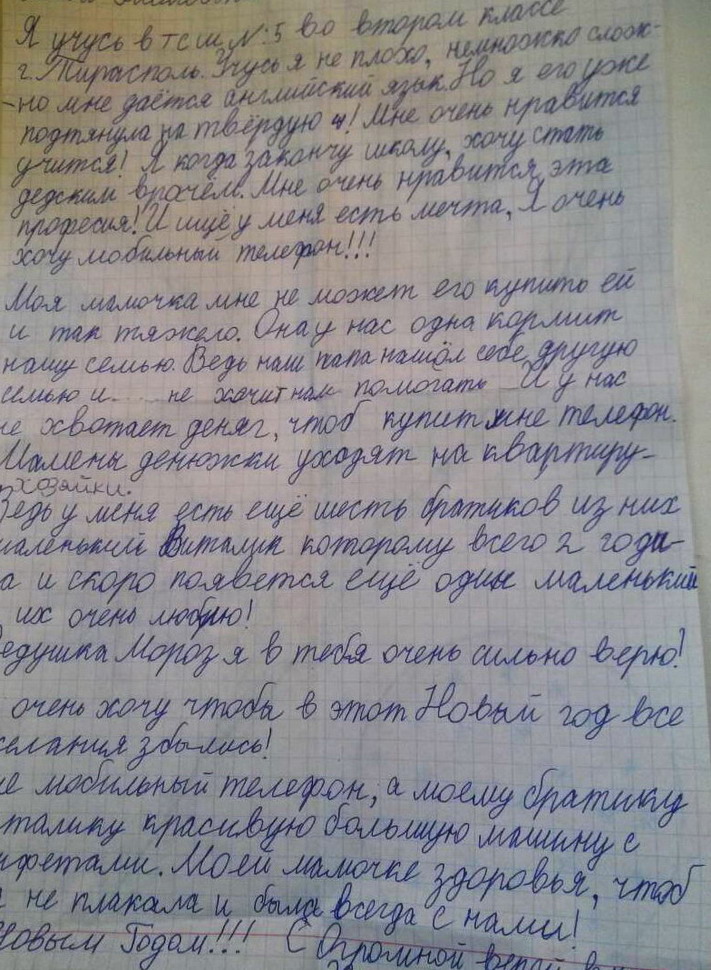 Я учусь в тсш №:5 во втором классе
г. Тирасполь. Учусь я не плохо, немножко слож-
-но мне даётся английский язык. Но я его уже
подтянула на твёрдую 4! Мне очень нравится
учится! Я когда закончу школу, хочу стать
дедским врачём. Мне очень нравится эта
професия! И ищё у меня есть мечта, Я очень
хочу мобильный телефон!!!
Моя мамочка мне не может его купить ей
и так тяжело. Она у нас одна кормит
нашу семью. Ведь наш папа нашол себе другую
семью и .... не хачит нам помогать И у нас
не хвотает деняг, чтоб купит мне телефон.
Мамены денюжки уходят на квартиру-
хозяйки.
Ведь у меня есть ещё шесть братиков из них
маленький Виталик которому всего 2 годи-
ка и скоро появется ещё один маленький
их очень люблю!
Дедушка Мороз я в тебя очень сильно верю!
очень хочу чтобы в этот Новый год все
желания збылись!
не мобильный телефон, а моему братику
талику красивую большую машину с
нфетами. Моей мамочке здоровья, чтоб
не плакала и была всегда с нами!
Новым Годом!!! С Огромной верой в